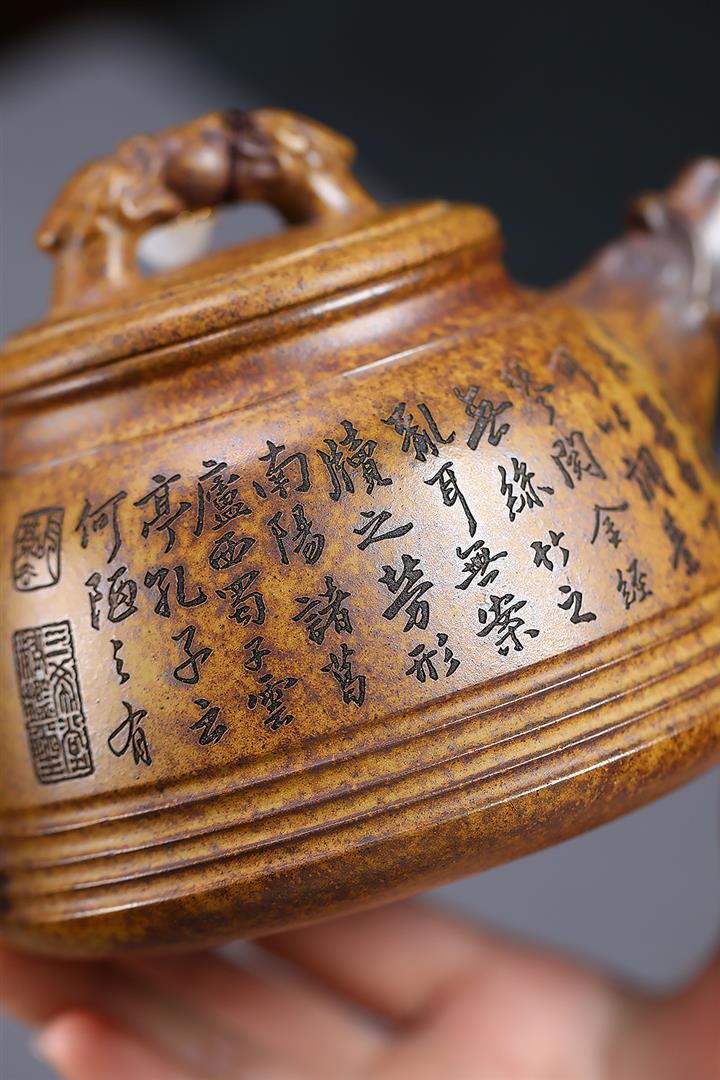 可以調素
琴閱金經
無絲竹之
亂耳無案
牘之勞形
南陽諸葛
廬西蜀子雲
亭孔子云
何陋之有